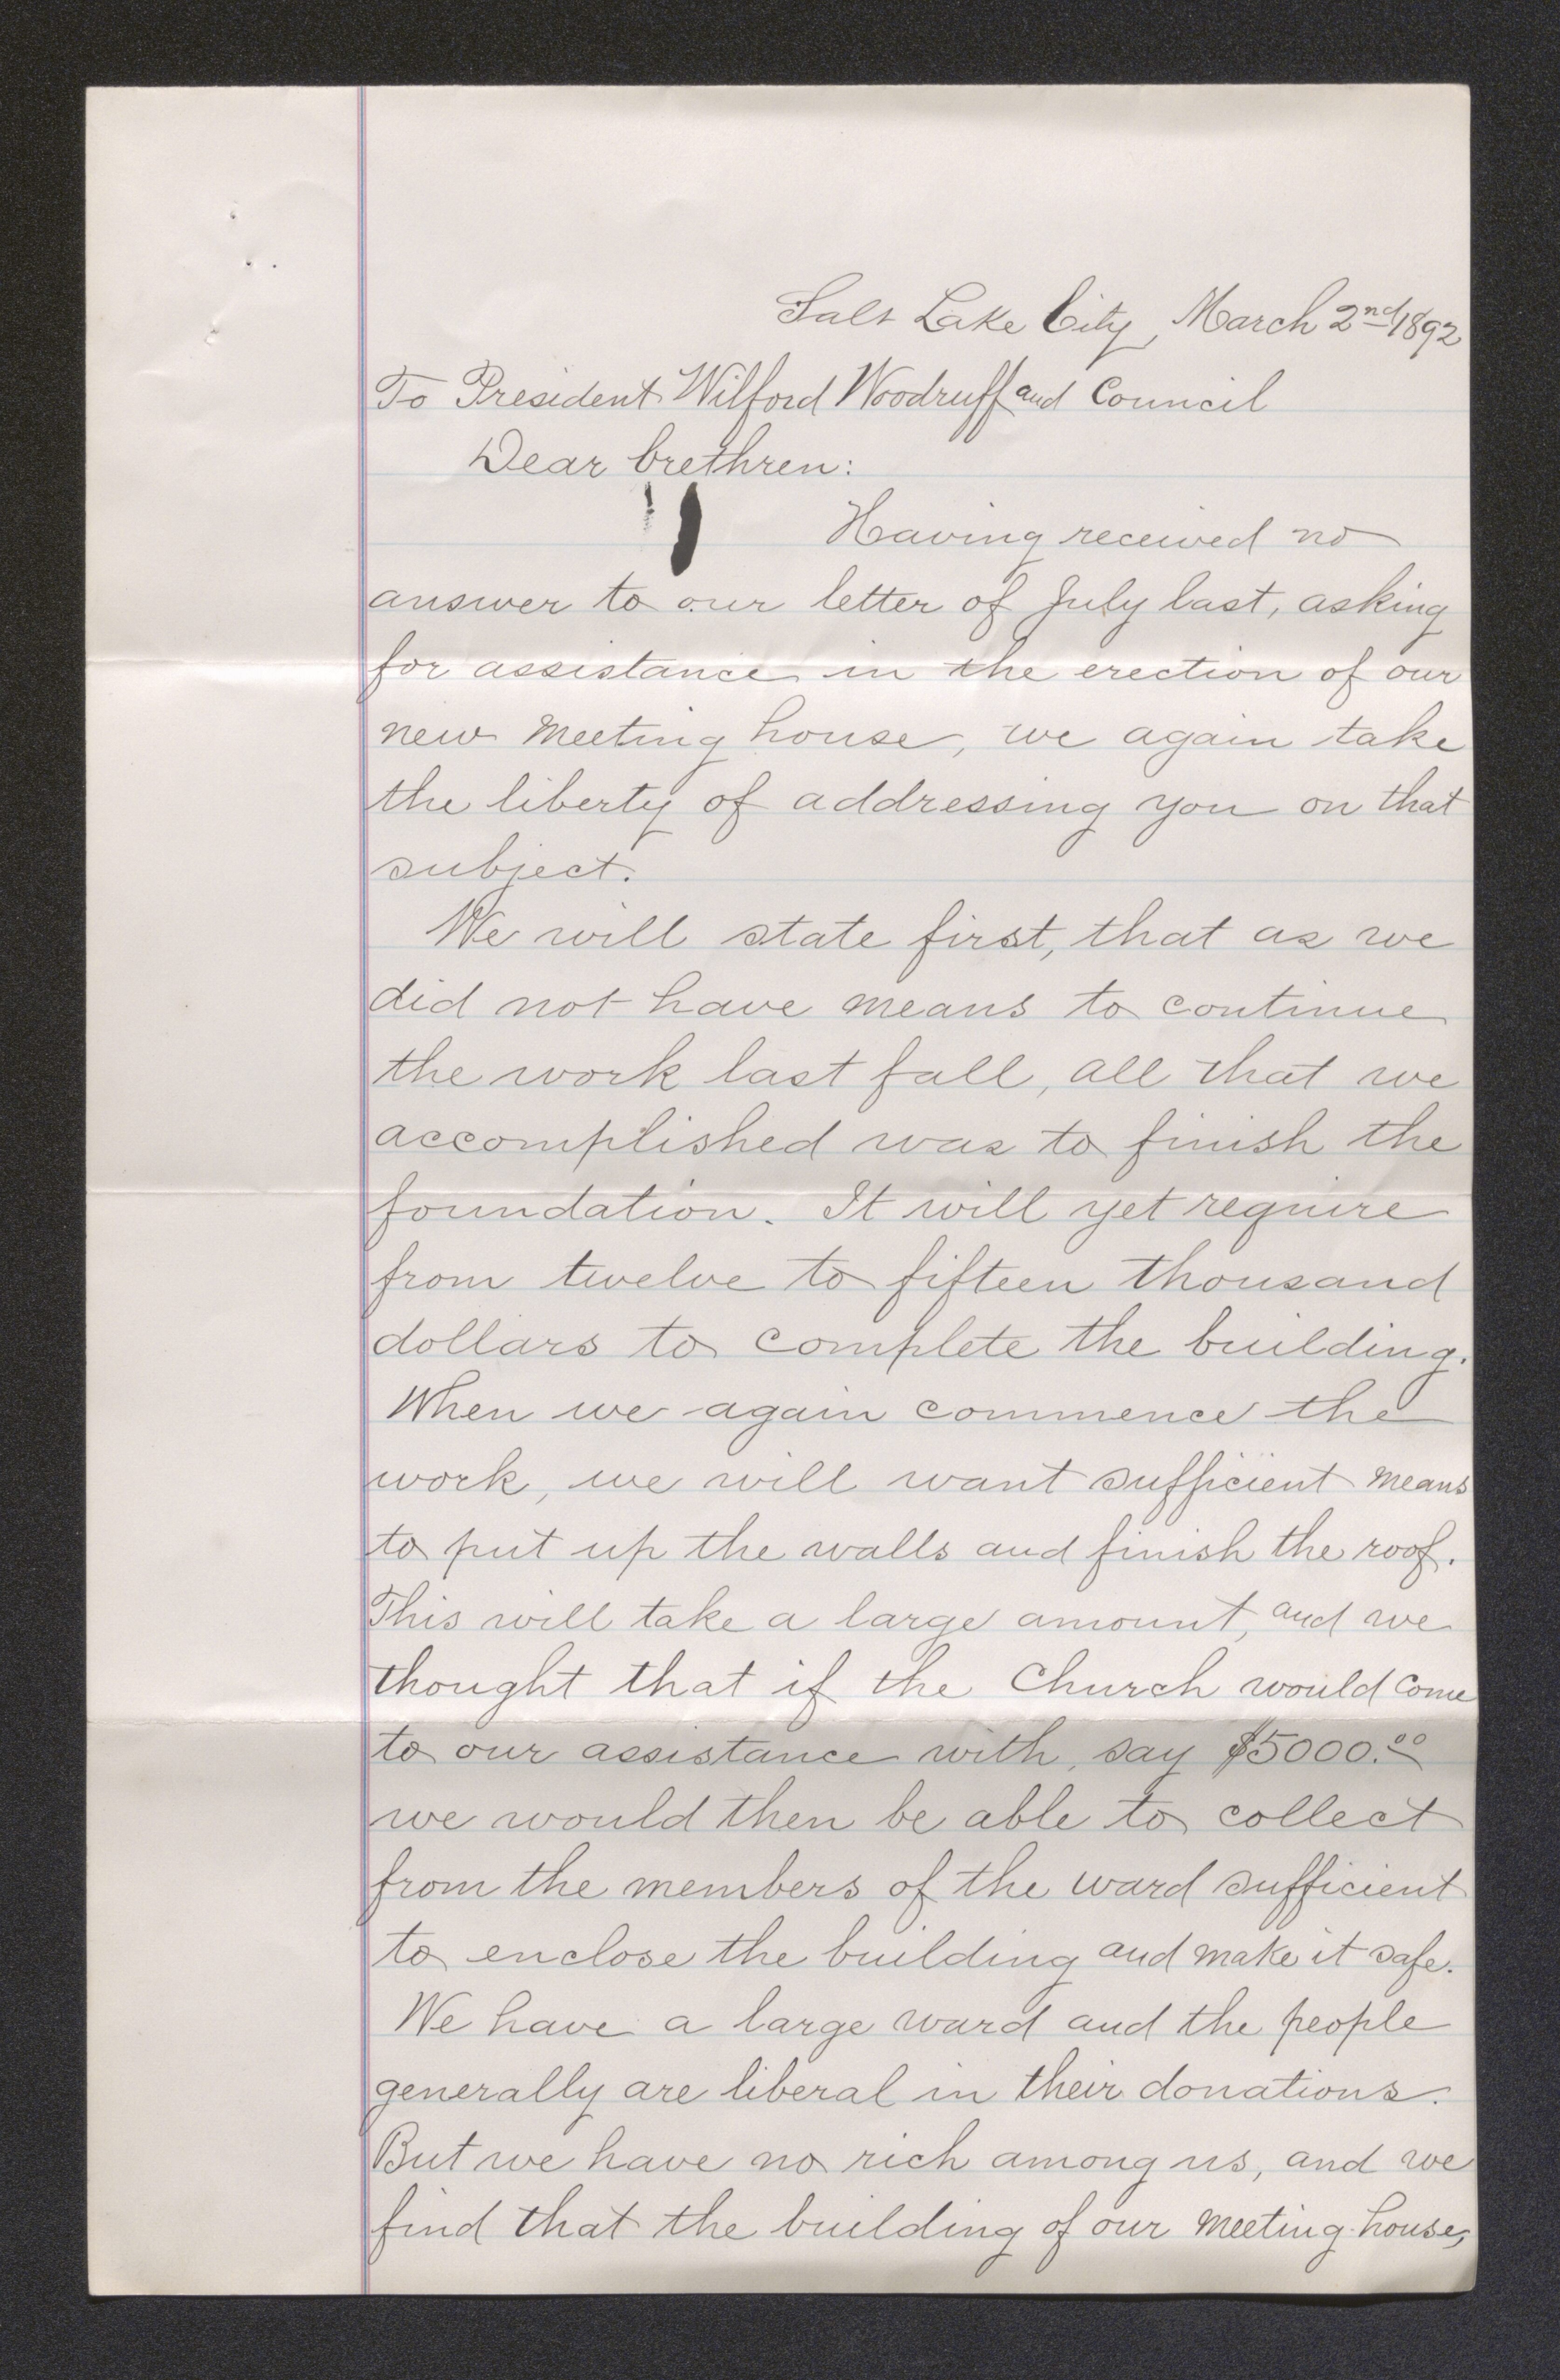 Salt Lake City, March 2nd 1892
To President Wilford Woodruff and Council
Dear brethren:
Having received no
answer to our letter of July last, asking
for assistance in the erection of our
new meeting house, we again take
the liberty of addressing you on that
subject.
We will state first, that as we
did not have means to continue
the work last fall, all that we
accomplished was to finish the
foundation. It will yet require
from twelve to fifteen thousand
dollars to complete the building.
When we again commence the
work, we will want sufficient means
to put up the walls and finish the roof.
This will take a large amount, and we
thought that if the Church would come
to our assistance with, say $5000.00
we would then be able to collect
from the members of the ward sufficient
to enclose the building and make it safe.
We have a large ward and the people
generally are liberal in their donations.
But we have no rich among us, and we
find that the building of our meeting-house,